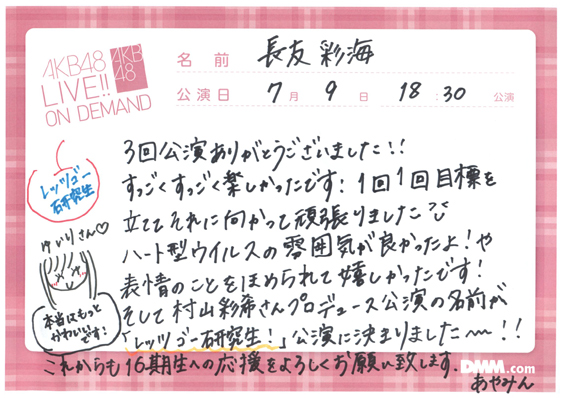 AKB48
LIVE!!
ON DEMAND
AKB
48
名前 長友彩海
公演日 7月9日 18:30 公演
3回公演ありがとうございました!!
すっごくすっごく楽しかったです! 1回1回目標を
立ててそれに向かって頑張りました
ハート型ウイルスの雰囲気が良かったよ!や
表情のことをほめられて嬉しかったです!
そして村山彩希さんプロデュース公演の名前が
「レッツゴー研究生!」公演に決まりました〜!!
これからも16期生への応援をよろしくお願い致します.
あやみん
レッツゴー
研究生
ゆいりさん♡
本当はもっと
かわいい
です!
DMM.com